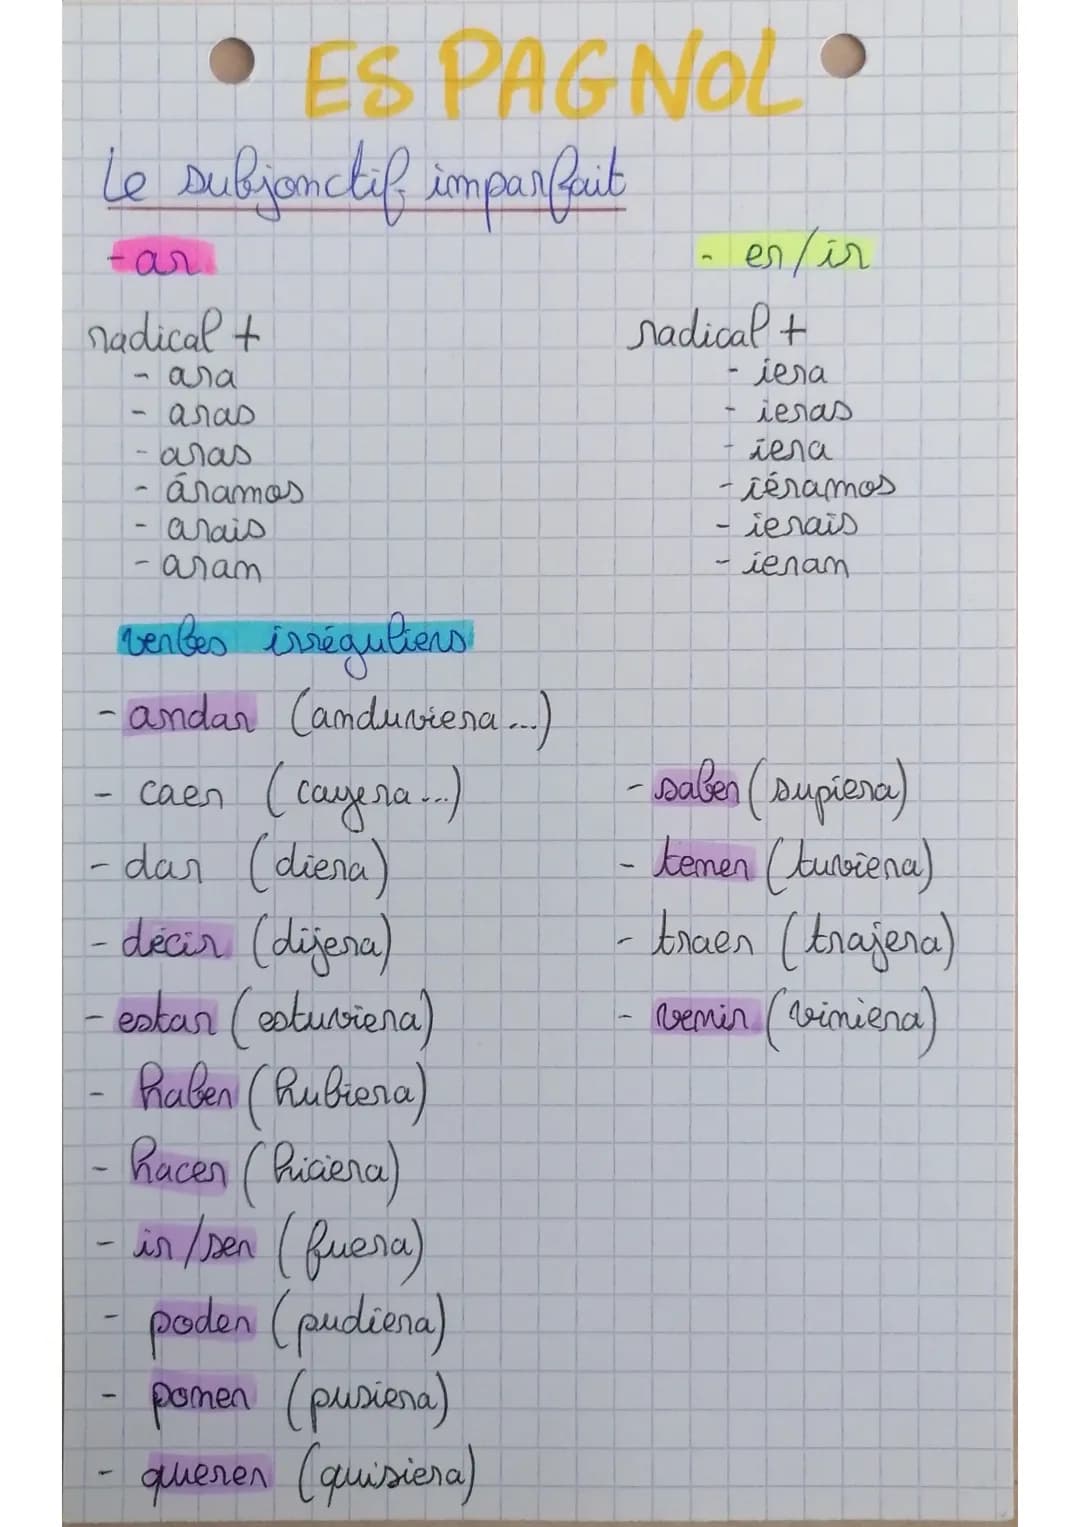 ESPAGNOL
Le subjonctif imparfait
-ar
- er/ir
radical +
- ara
- aras
- aras
- áramos
- arais
- aran
radical +
- iera
- ieras
- iera
- iéramos
- ierais
- ieran
verbes irréguliers
- andar (anduviera...)
- caer (cayera...)
- dar (diera)
- décir (dijera)
- estar (estuviera)
- haber (hubiera)
- hacer (hiciera)
- ir/ser (fuera)
- poder (pudiera)
- poner (pusiera)
- querer (quisiera)
- saber (supiera)
- tener (tuviera)
- traer (trajera)
- venir (viniera)